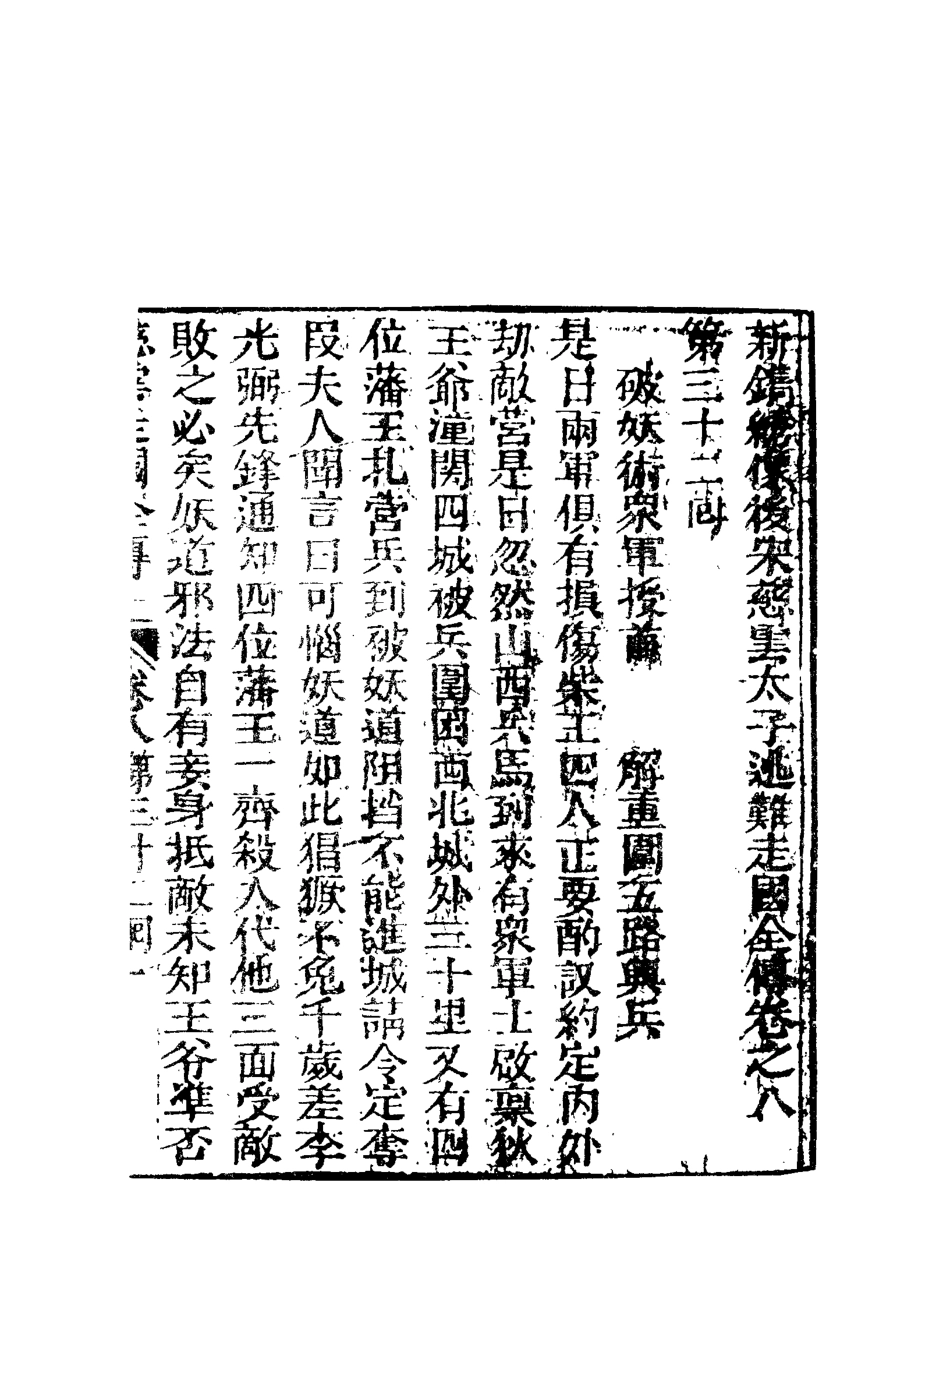 新鐫繡像後宋慈雲太子逃難走國全傳卷之八
第三十二回
破妖術衆軍授首 解重圍五路興兵
是日兩軍俱有損傷柴王四人正要酌議約定内外
劫敵營是日忽然山西兵馬到來有衆軍士啟稟狄
王爺潼関四城被兵圍困西北城外三十里又有四
位藩王扎营兵到被妖道阻挡不能進城請令定奪
叚夫人聞言曰可惱妖道如此猖獗不免千歲差李
光弼先鋒通知四位藩王一齊殺入代他三面受敵
敗之必矣妖道邪法自有妾身抵敵未知王爺準否
慈雲走國全傳 卷八 第三十二回 一